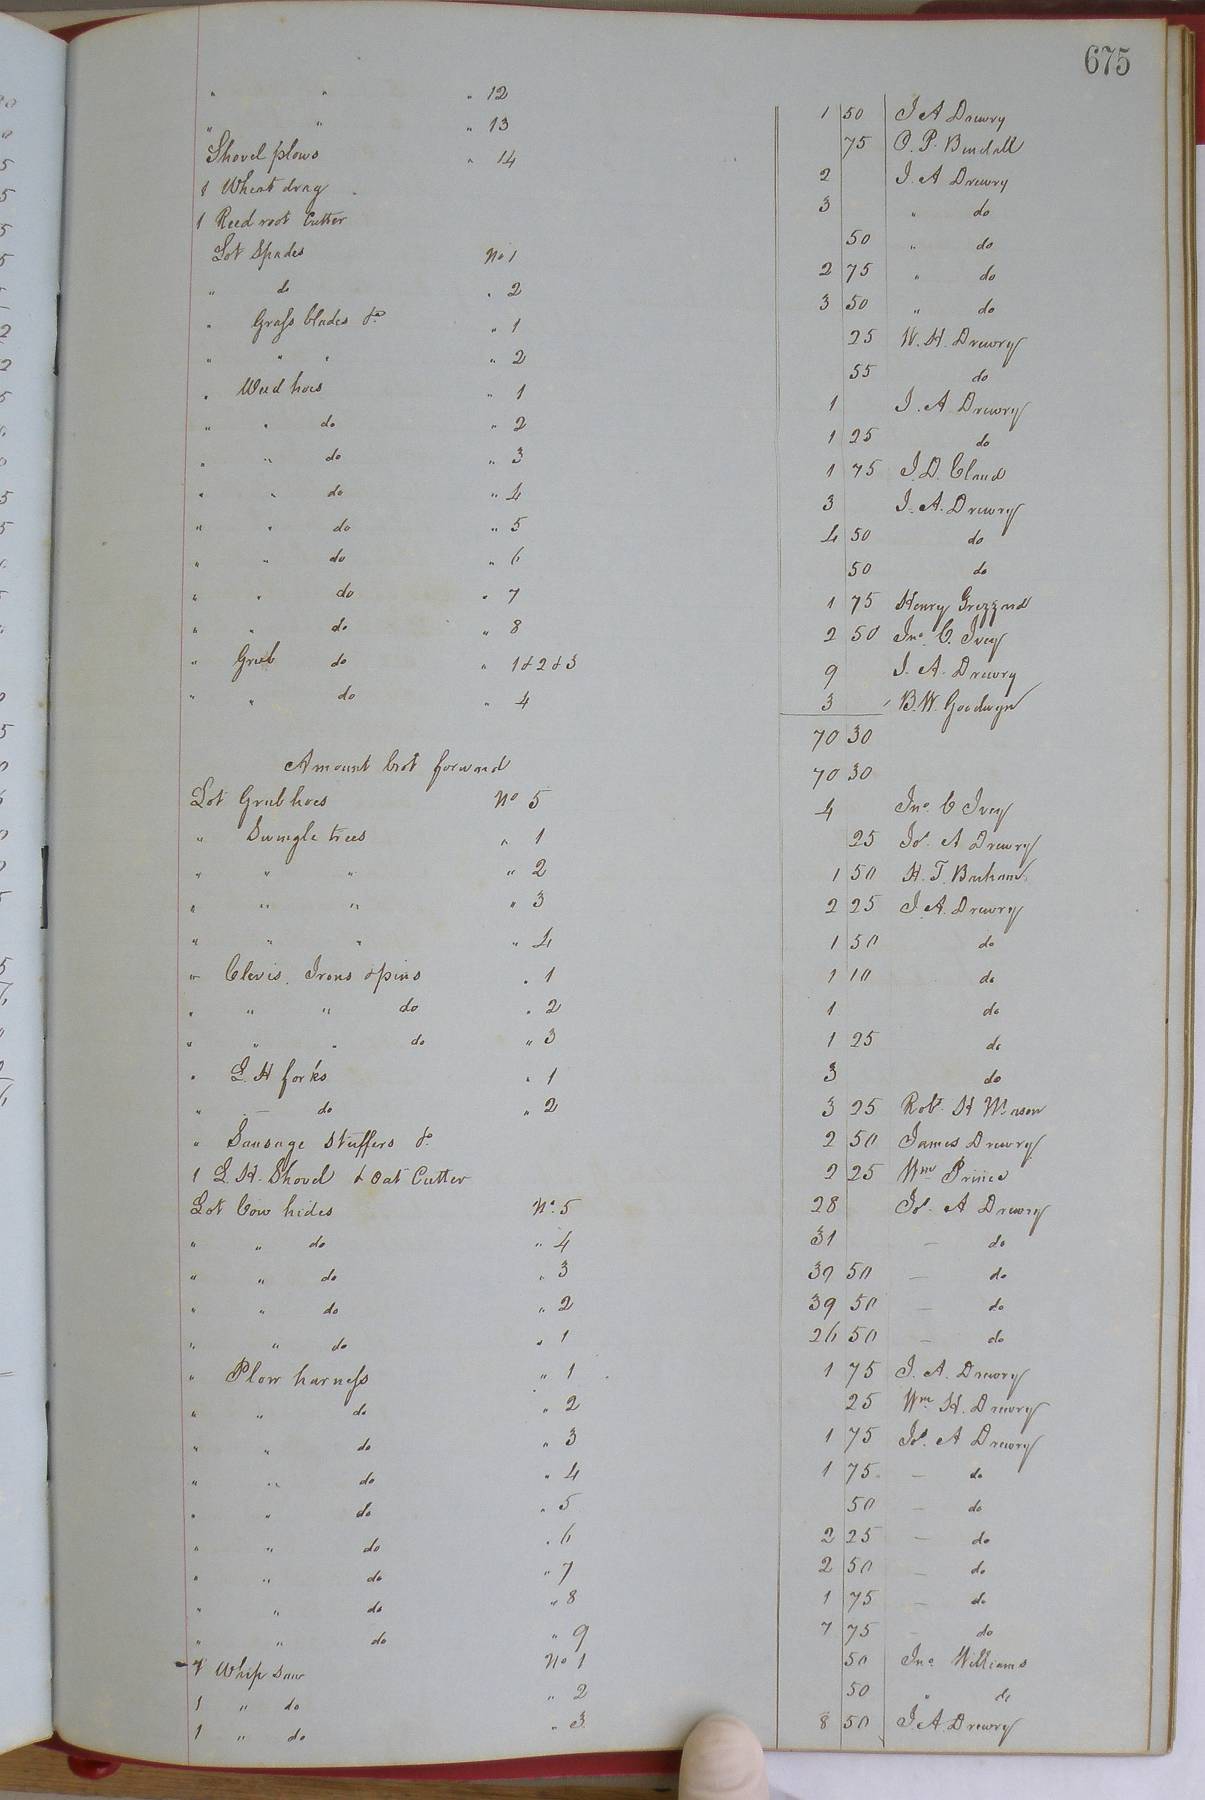 675
" " " 12 1 50 J A Drewry
" " " 13 75 O. P. Bendall
Shovel plows " 14 2 J. A Drewry
1 Wheat drag 3 " do
1 Reed root Cutter 50 " do
Lot Spades No 1 2 75 " do
" do " 2 3 50 " do
" Grass blades &c " 1 25 W. H. Drewry
" " " " 2 55 do
" Weed hoes " 1 1 J. A Drewry
" " do " 2 1 25 do
" " do " 3 1 75 J. D. Claud
" " do " 4 3 J. A. Drewry
" " do " 5 4 50 do
" " do " 6 50 do
" " do " 7 1 75 Henry Grizzard
" " do " 8 2 50 Jno. C. Ivey
" Grub do " 1 & 2 & 3 9 J. A. Drewry
" " do " 4 3 B. W. Goodwyn
70 30
Amount brot forward 70 30
Lot Grub hoes No 5 4 Jno. C Ivey
" Swingle trees " 1 25 Jos. A Drewry
" " " " 2 1 50 H. T. Barham
" " " " 3 2 25 J. A. Drewry
" " " " 4 1 50 do
" Clevis, Irons & pins " 1 1 10 do
" " " do " 2 1 do
" " " do " 3 1 25 do
" L. H forks " 1 3 do
" — do " 2 3 25 Robt. H Mason
" Sausage Stuffers &c 2 50 James Drewry
1 L. H. Shovel & Oat Cutter 2 25 Wm Prince
Lot Cow hides No. 5 28 Jos. A Drewry
" " do " 4 31 — do
" " do " 3 39 50 — do
" " do " 2 39 50 — do
" " do " 1 26 50 — do
" Plow harness " 1 1 75 J. A. Drewry
" " do " 2 25 Wm H. Drewry
" " do " 3 1 75 Jos. A Drewry
" " do " 4 1 75 — do
" " do " 5 50 — do
" " do " 6 2 25 — do
" " do " 7 2 50 — do
" " do " 8 1 75 — do
" " do " 9 7 75 — do
1 Whip Saw No 1 50 Jno. Williams
1 " do " 2 50 " do
1 " do " 3 8 50 J. A. Drewry